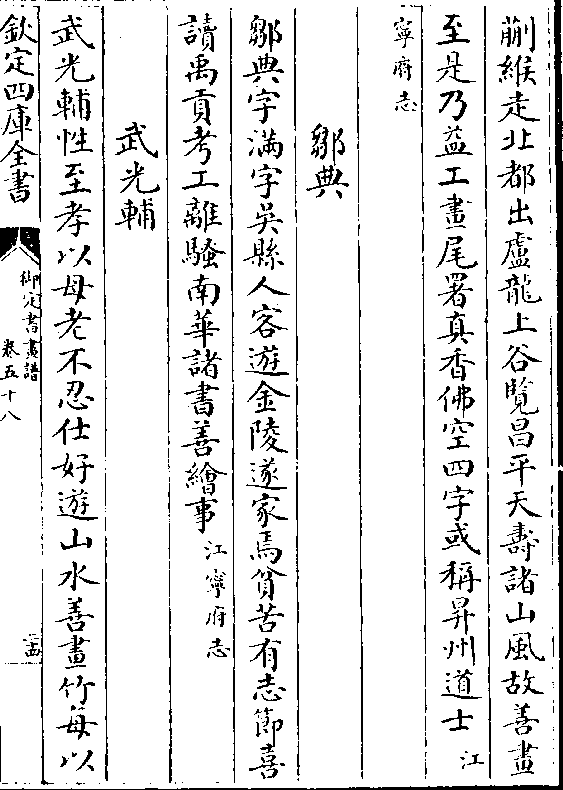 蒯緱走北都出盧龍上谷覽昌平天壽諸山風故善畫
至是乃益工畫尾署真香佛空四字或稱昇州道士江
寧府志
鄒典
鄒典字滿字吳縣人客遊金陵遂家焉貧苦有志節喜
讀禹貢考工離騷南華諸書善繪事江寧府志
武光輔
武光輔性至孝以母老不忍仕好遊山水善畫竹每以
欽定四庫全書
御定書畫譜
卷五十八